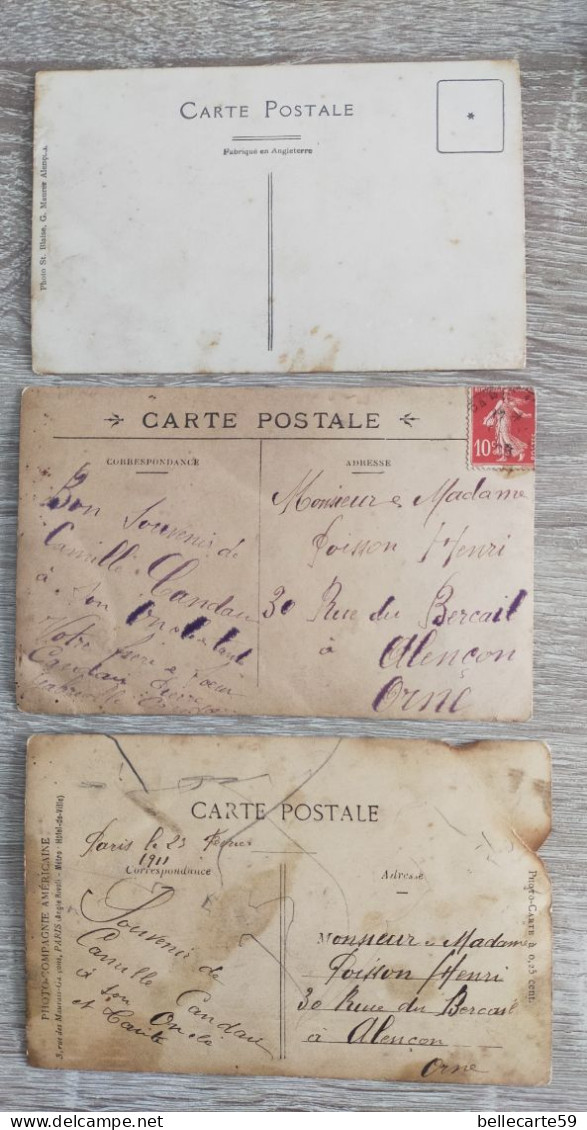 CARTE POSTALE
Fabriqué en Angleterre
Photo St. Blaise, G. Maunce
CARTE POSTALE
10c
CORRESPONDANCE
ADRESSE
Bon Souvenir de
Camille Candau
à Son Oncle
Votre frère & Soeur
Monsieur & Madame
Poisson Henri
30 Rue du Bercail
à
Alençon
Orne
CARTE POSTALE
PHOTO-COMPAGNIE AMÉRICAINE
PARIS Métro : Hôtel-de-Ville)
Paris le 23
1911
Correspondance
Adresse
Souvenir de
Camille Candau
à son Oncle
et Tante
Monsieur & Madame
Poisson Henri
30 Rue du Bercail
à Alençon
Orne
PHOTO-CARTE à 0,25 cent.
bellecarte59